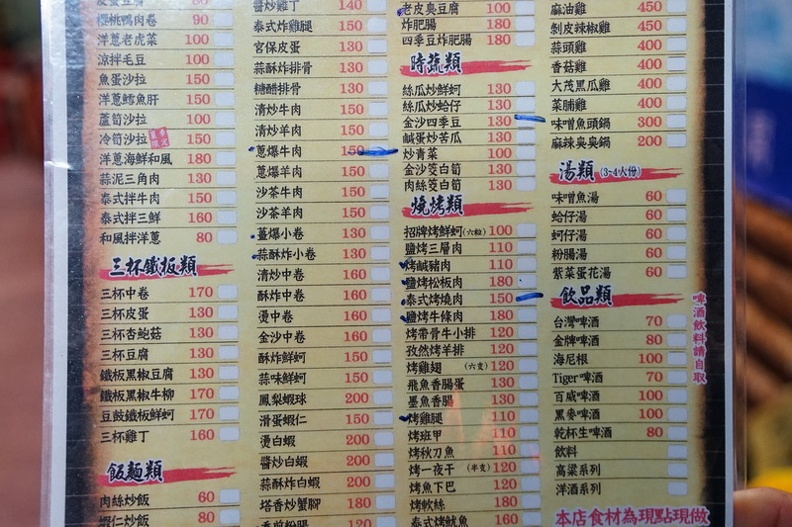 櫻桃鴨肉卷 90
洋蔥老虎菜 100
涼拌毛豆 100
魚蛋沙拉 150
洋蔥鱈魚肝 150
蘆筍沙拉 100
冷筍沙拉 150
洋蔥海鮮和風 180
蒜泥三角肉 130
泰式拌牛肉 150
泰式拌三鮮 160
和風拌洋蔥 80
三杯鐵板類
三杯中卷 170
三杯皮蛋 130
三杯杏鮑菇 130
三杯豆腐 130
鐵板黑椒豆腐 130
鐵板黑椒牛柳 170
豆豉鐵板鮮蚵 170
三杯雞丁 160
飯麵類
肉絲炒飯 60
蝦仁炒飯 80
醬炒雞丁 140
泰式炸雞腿 150
宮保皮蛋 130
蒜酥炸排骨 130
糖醋排骨 130
清炒牛肉 150
清炒羊肉 150
蔥爆牛肉 150
蔥爆羊肉 150
沙茶牛肉 150
沙茶羊肉 150
薑爆小卷 130
蒜酥炸小卷 130
清炒中卷 160
酥炸中卷 160
燙中卷 160
金沙中卷 160
酥炸鮮蚵 150
蒜味鮮蚵 150
鳳梨蝦球 200
滑蛋蝦仁 150
燙白蝦 200
醬炒白蝦 200
蒜酥炸白蝦 200
塔香炒蟹腳 180
老皮臭豆腐 100
炸肥腸 180
四季豆炸肥腸 180
時蔬類
絲瓜炒鮮蚵 130
絲瓜炒蛤仔 130
金沙四季豆 130
鹹蛋炒苦瓜 130
炒青菜 100
金沙筊白筍 130
肉絲筊白筍 130
燒烤類
招牌烤鮮蚵(六粒) 100
鹽烤三層肉 110
烤鹹豬肉 110
鹽烤松板肉 180
泰式烤燒肉 150
鹽烤牛條肉 180
烤帶骨牛小排 120
孜然烤羊排 120
烤雞翅 (六支) 120
飛魚香腸蛋 130
墨魚香腸 130
烤雞腿 110
烤班甲 110
烤秋刀魚 110
烤一夜干 (半隻) 120
烤魚下巴 120
烤軟絲 180
泰式烤魷魚 160
麻油雞 450
剝皮辣椒雞 450
蒜頭雞 400
香菇雞 400
大茂黑瓜雞 400
菜脯雞 400
味噌魚頭鍋 300
麻辣臭臭鍋 200
湯類 (3~4人份)
味噌魚湯 60
蛤仔湯 60
蚵仔湯 60
粉腸湯 60
紫菜蛋花湯 60
飲品類
台灣啤酒 70
金牌啤酒 80
海尼根 100
Tiger啤酒 70
百威啤酒 100
黑麥啤酒 100
乾杯生啤酒 80
飲料
高粱系列
洋酒系列
啤酒飲料請自取
本店食材為現點現做